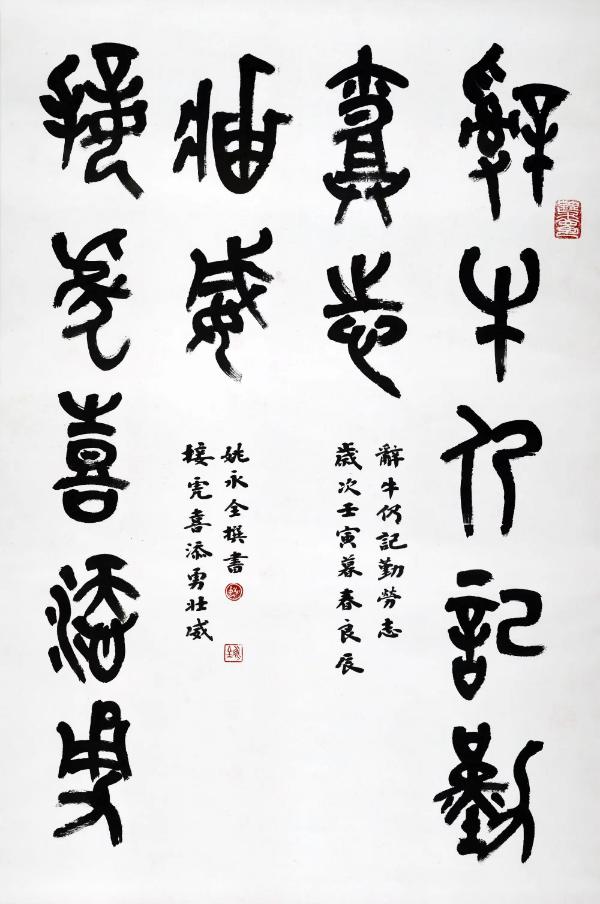 辭牛仍記勤
勞志
接虎喜添勇
壯威
辭牛仍記勤勞志
歲次壬寅暮春良辰
接虎喜添勇壯威
姚永全撰書